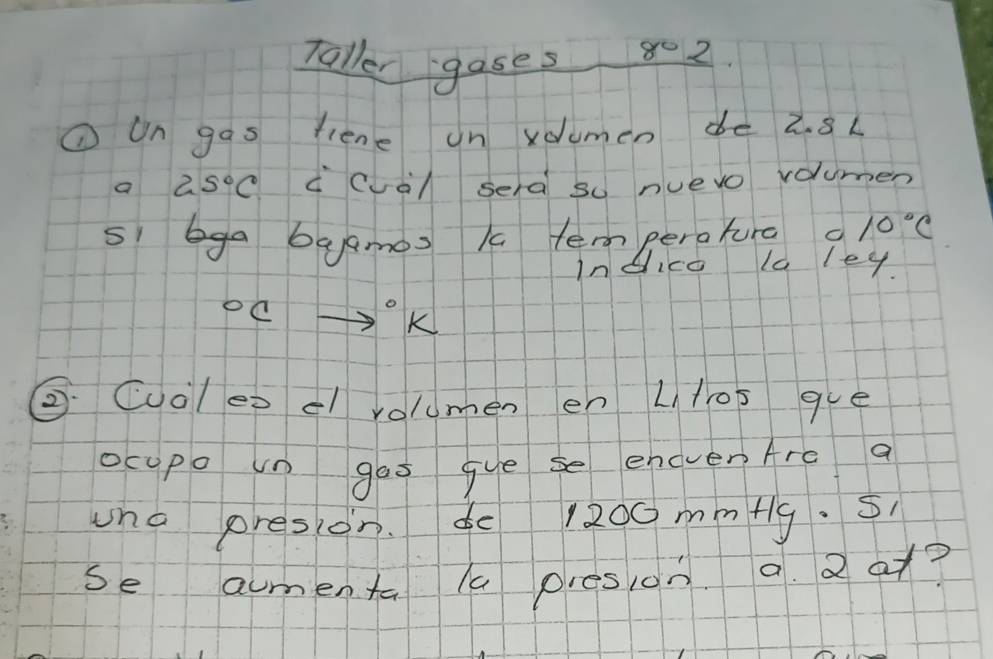 Taller gases 8º2.
① Un gas tiene un volumen de 2.8 L
a 25ºC ¿ Cuál será su nuevo volumen
si baja bajamos la temperatura a 10ºC
indica la ley.
ºC → ºK
②. Cuál es el volumen en Litros que
ocupa un gas que se encuentre a
una presión. de 1200 mmHg. Si
se aumenta la presión. a 2 at?